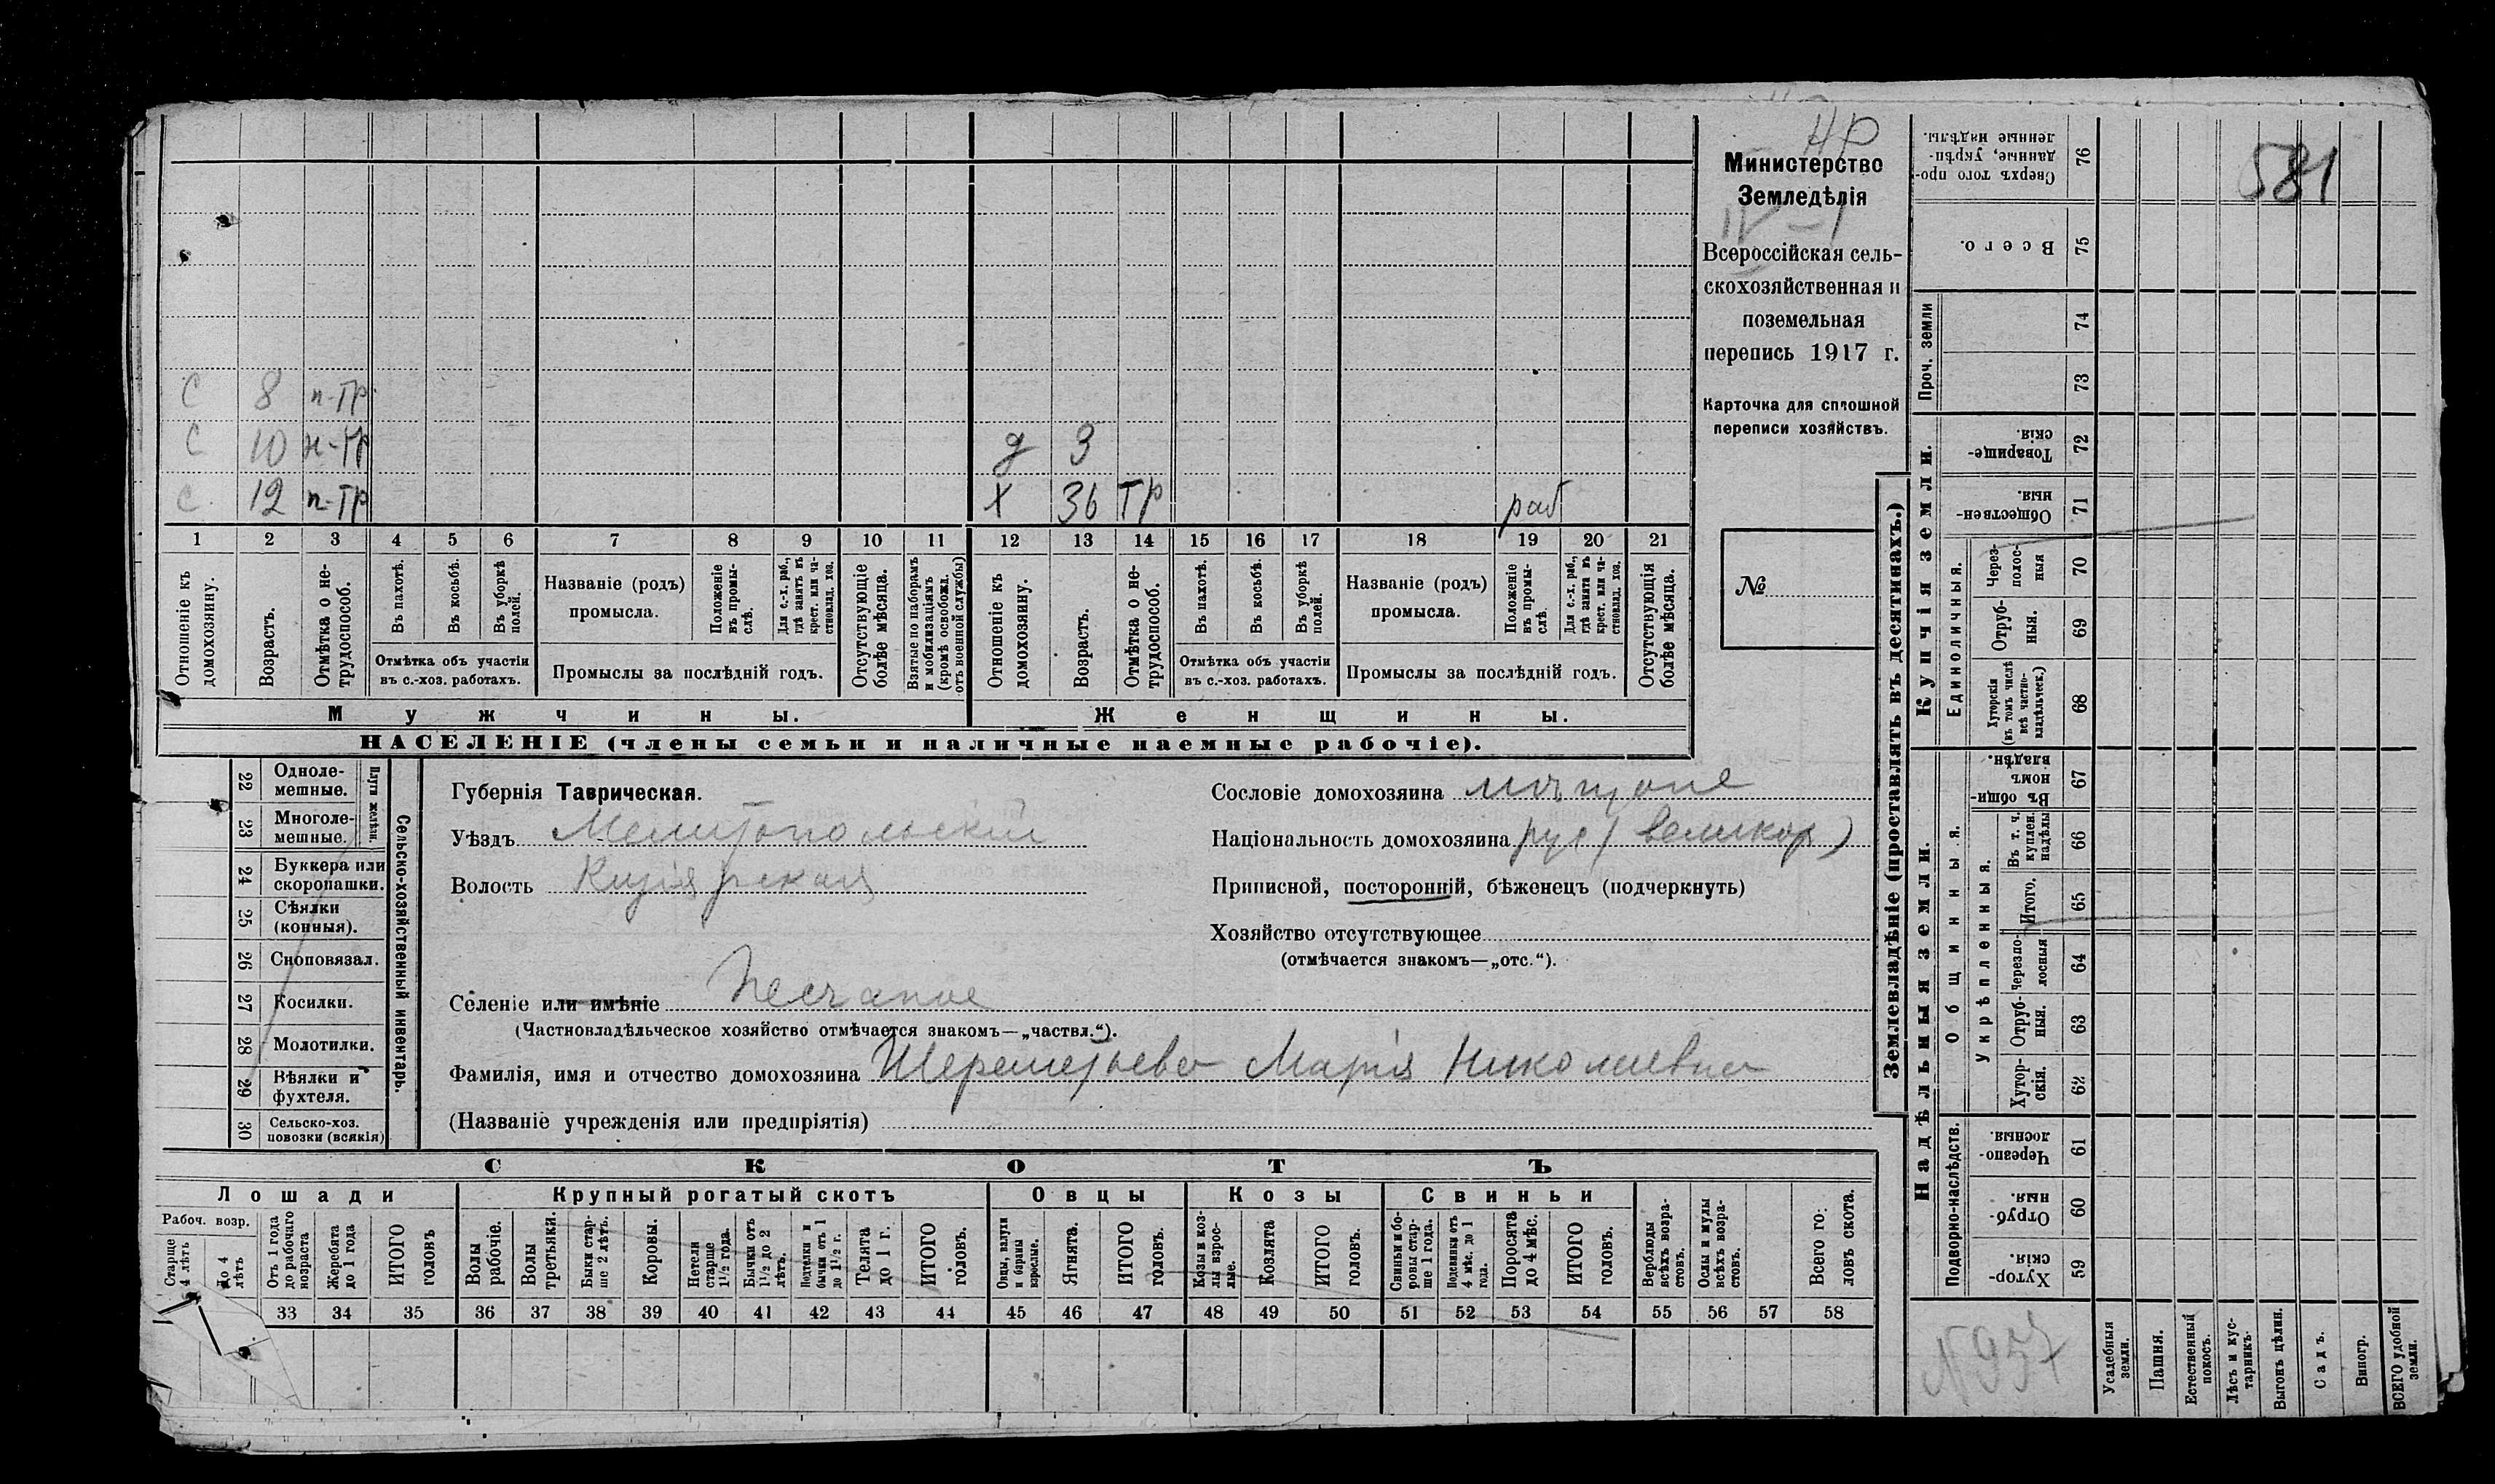 НР
581
Министерство
Земледѣлія
IV – 1
Всероссійская сель-
скохозяйственная и
поземельная
перепись 1917 г.
Карточка для сплошной
переписи хозяйствъ.
№
С 8 п-тр.
С 10 н-тр д 3
С. 12 п-тр Х 36 тр раб
1 2 3 4 5 6 7 8 9 10 11 12 13 14 15 16 17 18 19 20 21
Отношеніе къ домохозяину.
Возрастъ.
Отмѣтка о не-трудоспособ.
Въ пахотѣ.
Въ косьбѣ.
Въ уборкѣ полей.
Отмѣтка объ участіи
въ с.-хоз. работахъ.
Названіе (родъ)
промысла.
Положеніе въ промы-слѣ.
Для с.-х. раб., гдѣ занятъ въ крест. или ча-стновлад. хоз.
Промыслы за послѣдній годъ.
Отсутствующіе болѣе мѣсяца.
Взятые по наборамъ и мобилизаціямъ (кромѣ освобожд. отъ военной службы)
Отношеніе къ домохозяину.
Возрастъ.
Отмѣтка о не-трудоспособ.
Въ пахотѣ.
Въ косьбѣ.
Въ уборкѣ полей.
Отмѣтка объ участіи
въ с.-хоз. работахъ.
Названіе (родъ)
промысла.
Положеніе въ промы-слѣ.
Для с.-х. раб., гдѣ занята въ крест. или ча-стновлад. хоз.
Промыслы за послѣдній годъ.
Отсутствующія болѣе мѣсяца.
Мужчины. Женщины.
НАСЕЛЕНІЕ (члены семьи и наличные наемные рабочіе).
22 Одноле-мешные.
23 Многоле-мешные.
Плуги желѣзн.
24 Буккера или скоропашки.
25 Сѣялки (конныя).
26 Сноповязал.
27 Косилки.
28 Молотилки.
29 Вѣялки и фухтеля.
30 Сельско-хоз. повозки (всякія)
Сельско-хозяйственный инвентарь.
Губернія Таврическая.
Уѣздъ Мелитопольскій
Волость Кизіярская
Селеніе или имѣніе Песчаное
(Частновладѣльческое хозяйство отмѣчается знакомъ—„частвл.“).
Фамилія, имя и отчество домохозяина Шереметьева Марія Николаевна
(Названіе учрежденія или предпріятія)
Сословіе домохозяина мѣщане
Національность домохозяина рус (великор)
Приписной, посторонній, бѣженецъ (подчеркнуть)
Хозяйство отсутствующее
(отмѣчается знакомъ—„отс.“).
СКОТЪ
Лошади
Рабоч. возр.
Старше 4 лѣтъ
До 4 лѣтъ
Отъ 1 года до рабочаго возраста
Жеребята до 1 года
ИТОГО головъ
Крупный рогатый скотъ
Волы рабочіе.
Волы третьяки.
Быки стар-ше 2 лѣтъ.
Коровы.
Нетели старше 1½ года.
Бычки отъ 1½ до 2 лѣтъ.
Подтелки и бычки отъ 1 до 1½ г.
Телята до 1 г.
ИТОГО головъ.
Овцы
Овцы, валухи и бараны взрослые.
Ягнята.
ИТОГО головъ.
Козы
Козы и коз-лы взрос-лые.
Козлята
ИТОГО головъ.
Свиньи
Свиньи и бо-ровы стар-ше 1 года.
Подсвинки отъ 4 мѣс. до 1 года.
Поросята до 4 мѣс.
ИТОГО головъ.
Верблюды всѣхъ возра-стовъ.
Ослы и мулы всѣхъ возра-стовъ.
Всего го-ловъ скота.
33 34 35 36 37 38 39 40 41 42 43 44 45 46 47 48 49 50 51 52 53 54 55 56 57 58
Землевладѣніе (проставлять въ десятинахъ.)
Купчія земли.
Надѣльныя земли.
Сверхъ того про-данные, укрѣп-ленные надѣлы. 76
Всего. 75
Проч. земли 74
73
Товарище-скія. 72
Обществен-ныя. 71
Единоличныя.
Через-полос-ныя 70
Отруб-ныя. 69
Хуторскія (въ томъ числѣ всѣ частно-владѣльческ.) 68
Общинныя.
Въ общи-номъ владѣн. 67
Укрѣпленныя.
Въ т. ч. куплен. надѣлы 66
Итого. 65
Черезпо-лосныя 64
Отруб-ныя. 63
Хутор-скія. 62
Подворно-наслѣдств.
Черезпо-лосныя. 61
Отруб-ныя. 60
Хутор-скія. 59
N 937
Усадебныя земли.
Пашня.
Естественный покосъ.
Лѣсъ и кус-тарникъ.
Выгонъ цѣлин.
Садъ.
Виногр.
ВСЕГО удобной земли.